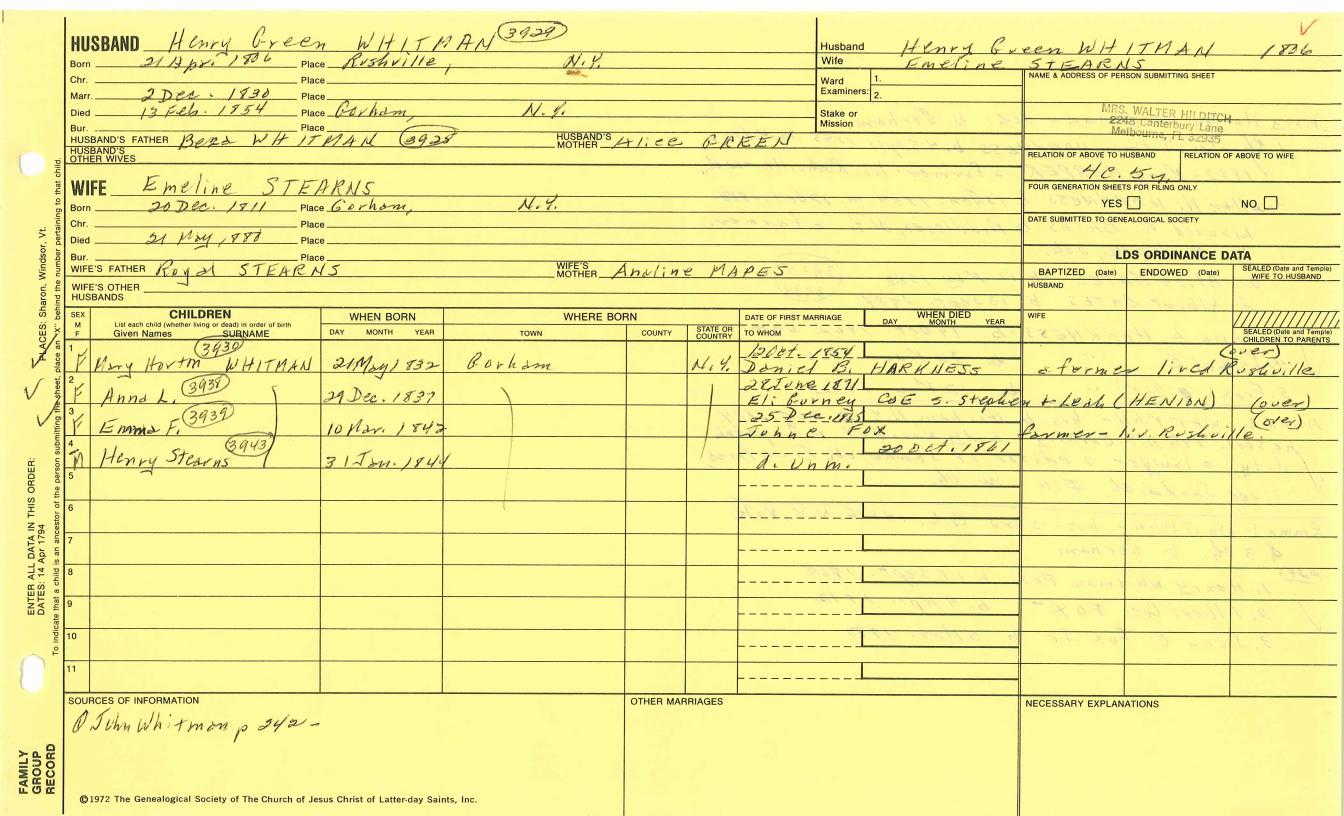 HUSBAND Henry Green WHITMAN 3929
Born 21 Apr. 1806 Place Rushville, N.Y.
Chr. Place
Marr. 2 Dec. 1830 Place
Died 13 Feb. 1854 Place Gorham, N.Y.
Bur. Place
HUSBAND'S FATHER Beza WHITMAN 3928 HUSBAND'S MOTHER Alice GREEN
HUSBAND'S OTHER WIVES
WIFE Emeline STEARNS
Born 20 Dec. 1811 Place Gorham, N.Y.
Chr. Place
Died 21 May, 1880 Place
Bur. Place
WIFE'S FATHER Royal STEARNS WIFE'S MOTHER Analine MAPES
WIFE'S OTHER HUSBANDS
Husband Henry Green WHITMAN 1806
Wife Emeline STEARNS
Ward Examiners: 1.
2.
Stake or Mission
NAME & ADDRESS OF PERSON SUBMITTING SHEET
MRS. WALTER HILDITCH
2248 Canterbury Lane
Melbourne, FL 32935
RELATION OF ABOVE TO HUSBAND RELATION OF ABOVE TO WIFE
4c. 5r.
FOUR GENERATION SHEETS FOR FILING ONLY
YES NO
DATE SUBMITTED TO GENEALOGICAL SOCIETY
LDS ORDINANCE DATA
BAPTIZED (Date) ENDOWED (Date) SEALED (Date and Temple) WIFE TO HUSBAND
HUSBAND
WIFE
SEALED (Date and Temple) CHILDREN TO PARENTS
SEX M F CHILDREN WHEN BORN WHERE BORN DATE OF FIRST MARRIAGE WHEN DIED
List each child (whether living or dead) in order of birth
Given Names SURNAME DAY MONTH YEAR TOWN COUNTY STATE OR COUNTRY TO WHOM DAY MONTH YEAR
3930 12 Oct. 1854 (over)
1 F Mary WHITMAN 21 May, 1832 Gorham N.Y. Daniel B. HARKNESS a farmer lived Rushville
3938 28 June 1871
2 F Anna L. 29 Dec. 1837 Eli Gurney COE s. Stephen & Leah (HENION) (over)
3939 25 Dec. (over)
3 F Emma F. 10 Mar. 1842 John C. FOX farmer - liv. Rushville.
3943 20 Oct. 1861
4 M Henry Stearns 31 Jan. 1844 d. unm.
5
6
7
8
9
10
11
SOURCES OF INFORMATION OTHER MARRIAGES NECESSARY EXPLANATIONS
John Whitman p 242 -
©1972 The Genealogical Society of The Church of Jesus Christ of Latter-day Saints, Inc.
FAMILY GROUP RECORD
ENTER ALL DATA IN THIS ORDER:
DATES: 14 Apr 1794 PLACES: Sharon, Windsor, Vt.
To indicate that a child is an ancestor of the person submitting the sheet, place an "X" behind the number pertaining to that child.